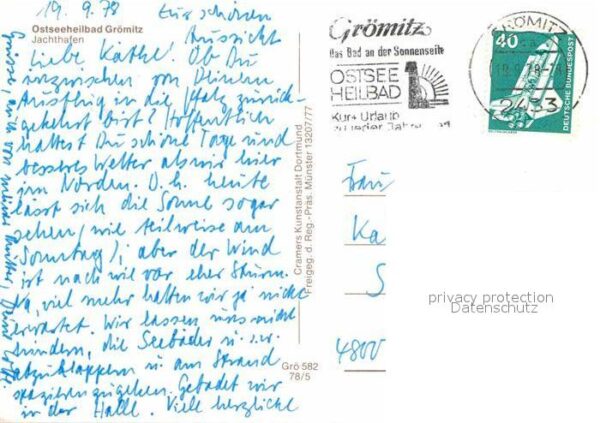 19.9.78 Zur schönen
Aussicht
Ostseeheilbad Grömitz
Jachthafen
Liebe Käthe! Ob Du
inzwischen von Deinem
Ausflug in die Pfalz zurück-
gekehrt bist? Hoffentlich
hattest Du schöne Tage und
besseres Wetter als wir hier
im Norden. D.h. heute
lässt sich die Sonne sogar
sehen, wie teilweise am
Sonntag, aber der Wind
ist nach wie vor eher Sturm.
Na, viel mehr hatten wir ja nicht
erwartet. Wir lassen uns nicht
hindern, die Seebäder u.s.w.
abzuklappern u. am Strand
spazierenzugehen. Gebadet wird
in der Halle. Viele herzliche
Grüsse, auch von meiner Mutter, Deine
Cramers Kunstanstalt Dortmund
Freigeg. d. Reg.-Präs. Münster 13207/77
Grö 582
78/5
Grömitz
das Bad an der Sonnenseite
OSTSEE
HEILBAD
Kur + Urlaub
zu jeder
GRÖMITZ
19.9.78
24 3
40
DEUTSCHE BUNDESPOST
Frau
Ka
S
4800
privacy protection
Datenschutz